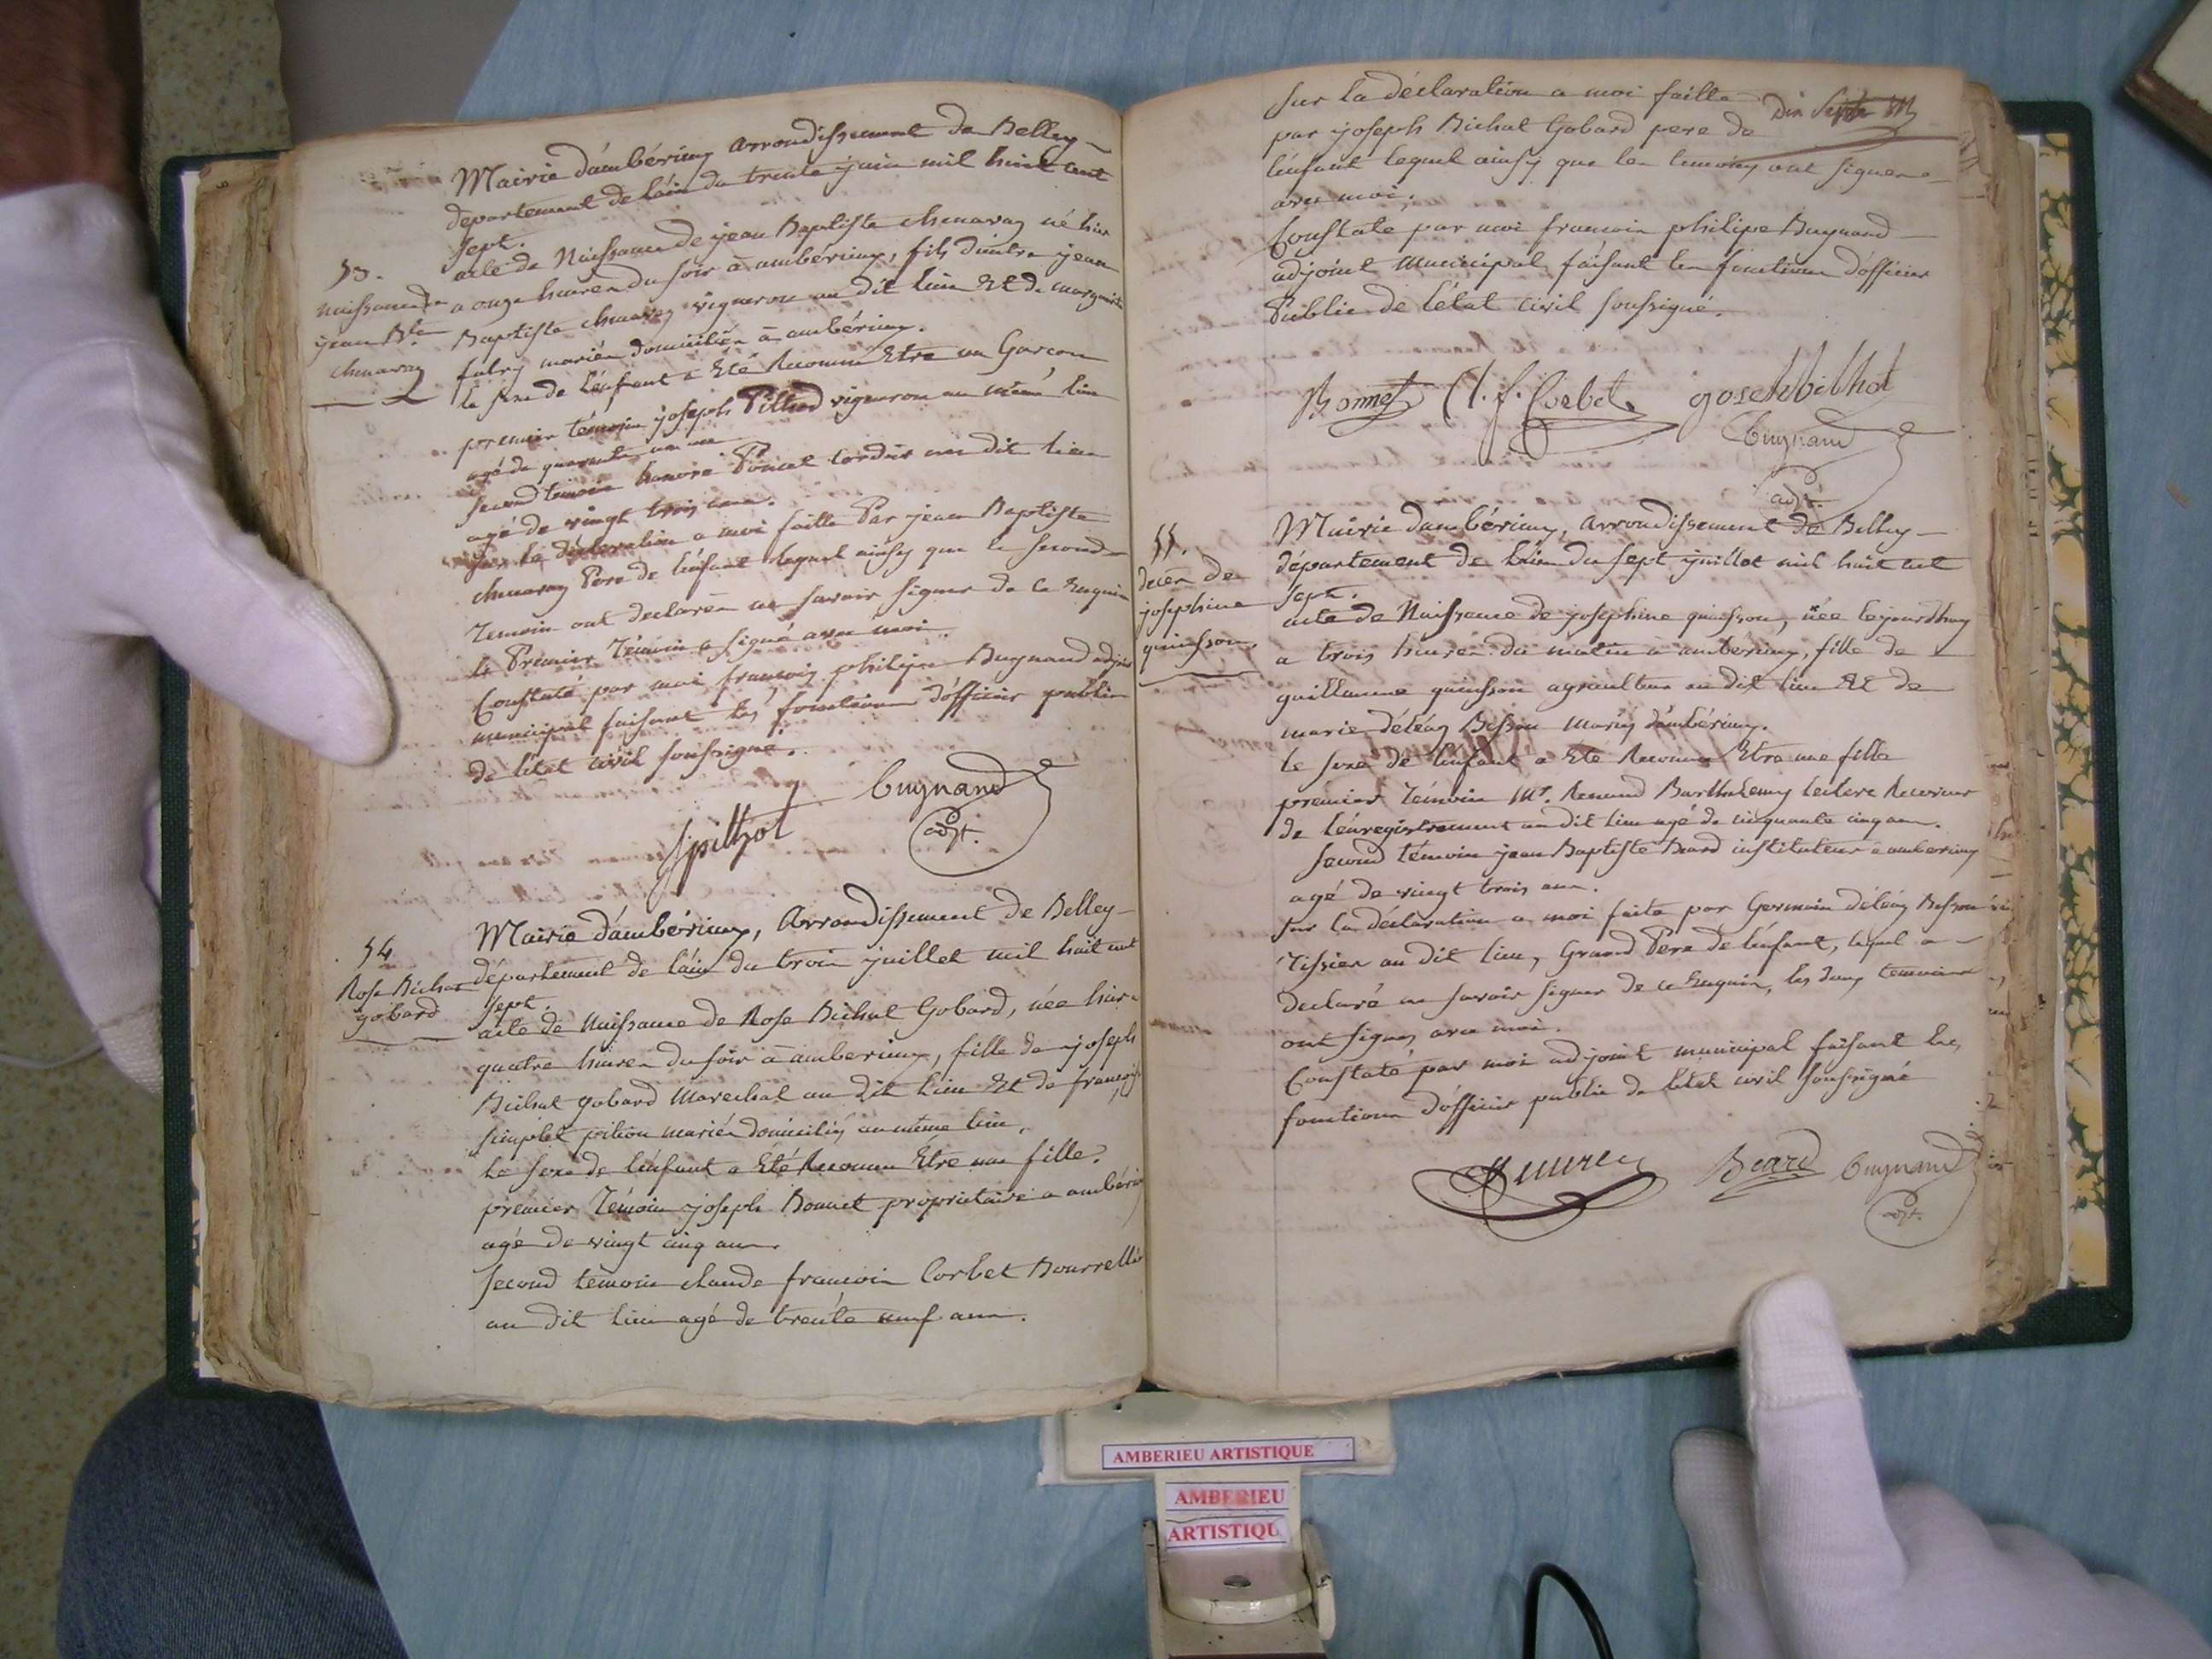 Mairie d'ambérieux arrondissement de Belley
departement de l'ain du trente juin mil huit cent
sept.
53.
naissance de
jean Bte
chenavaz
acte de Naissance de jean Baptiste chenavaz né hier
a onze heures du soir à ambérieux, fils d'entre jean
Baptiste chenavaz vigneron au dit lieu Et de marguerite
mariés domiciliés à ambérieux.
le sexe de l'enfant a Eté Reconnu Etre un Garçon
premier témoin joseph Pilliod vigneron au même lieu
agé de quarante un ans
second témoin honoré Poncet cordier au dit lieu
agé de vingt trois ans.
sur la déclaration a moi faitte Par jean Baptiste
chenavaz Pere de l'enfant lequel ainsy que le second
Temoin ont declarés ne savoir signer de ce Enquis
le Premier Témoin a signé avec moi.
Constaté par moi françois philipe Buynand adjoint
municipal faisant les fonctions d'officier public
de l'état civil soussigné.
Buynand
adjt.
54
Rose Bichat
gobard
Mairie d'ambérieux, Arrondissement de Belley
département de l'ain du trois juillet mil huit cent
sept.
acte de Naissance de Rose Bichat Gobard, née hier
quatre heures du soir à amberieux, fille de joseph
Bichat gobard Marechal au dit lieu Et de françoise
simplet pition mariés domiciliés au même lieu,
Le sexe de l'enfant a Eté Reconnu Etre une fille.
premier Témoin joseph Bonnet propriétaire a ambérieux
agé de vingt cinq ans.
second témoin claude françois Corbet Bourrellier
au dit lieu agé de trente neuf ans.
sur la déclaration a moi faitte
par joseph Bichat Gobard pere de
l'enfant lequel ainsy que les temoins ont signer
avec moi.
Constate par moi françois philipe Buynand
adjoint municipal faisant les fonctions d'officier
Public de l'état civil soussigné.
Bonnet Cl. f. Corbet
Buynand
adjt.
55.
décès de
josephine
quinson
Mairie d'ambérieux, arrondissement de Belley
département de l'ain du sept juillet mil huit cent
sept.
acte de Naissance de josephine quinson, née cejourdhuy
a trois heures du matin à ambérieux, fille de
guillaume quinson agriculteur au dit lieu Et de
marie déléaz Besson mariés d'ambérieux.
le sexe de l'enfant a Eté Reconnu Etre une fille
premier Témoin Mr. Renaud Barthelemy leclerc Receveur
de l'enregistrement au dit lieu agé de cinquante cinq ans.
second témoin jean Baptiste Beard instituteur a amberieux
agé de vingt trois ans.
sur la déclaration a moi faite par Germain déléaz Besson
Tissier au dit lieu, Grand Pere de l'enfant, lequel a
declaré ne savoir signer de ce Enquis, les deux temoins
ont signés avec moi.
Constaté par moi adjoint municipal faisant les
fonctions d'officier public de l'état civil soussigné
Beard Buynand
adjt.
AMBERIEU ARTISTIQUE
AMBERIEU
ARTISTIQU